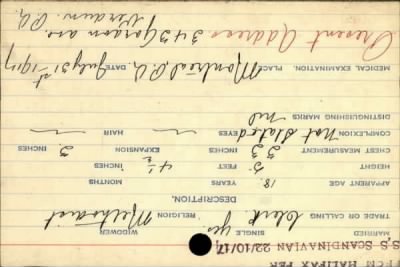 FROM HALIFAX PER
S.S SCANDINAVIAN 22/10/17
MARRIED SINGLE yes WIDOWER
TRADE OR CALLING Clerk RELIGION Methodist
DESCRIPTION.
APPARENT AGE 18 YEARS MONTHS
HEIGHT 5 FEET 4 1/2 INCHES
CHEST MEASUREMENT 33 INCHES EXPANSION 3 INCHES
COMPLEXION Not Stated EYES — HAIR —
DISTINGUISHING MARKS nil
MEDICAL EXAMINATION. PLACE Montreal P.Q. DATE July 31st 1917
Present Address 343 Gordon ave.
Verdun. P.Q.